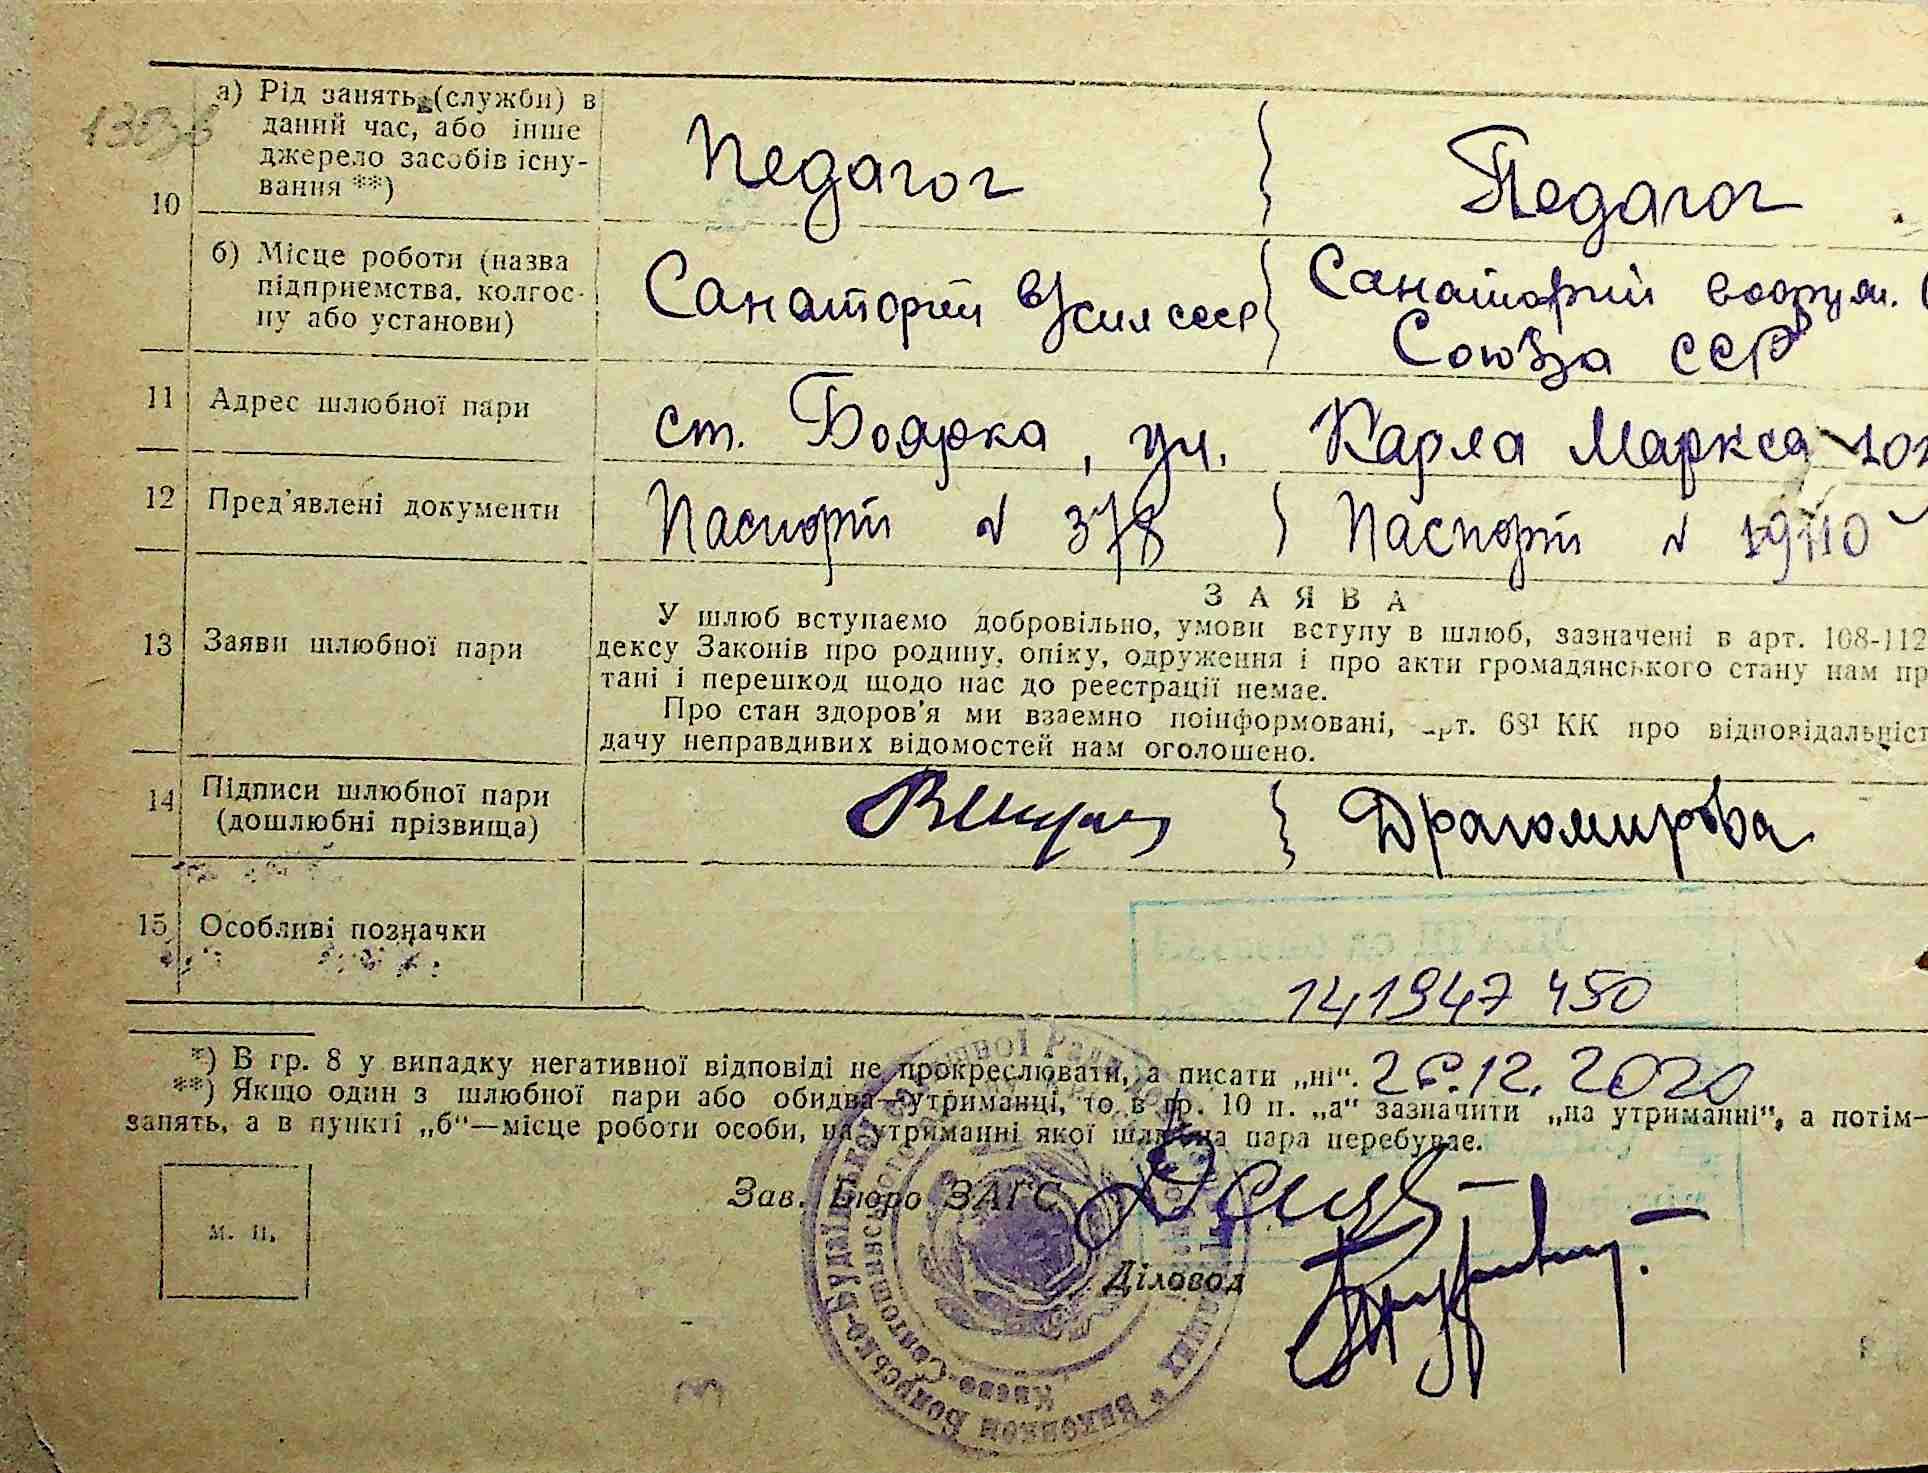 10
а) Рід занять (служби) в
даний час, або інше
джерело засобів існу-
вання **)
Педагог
Педагог
б) Місце роботи (назва
підприємства, колгос-
пу або установи)
Санаторий В/сил ссср
Санаторий вооруж.
Союза ССР
11 Адрес шлюбної пари
ст. Боярка, ул. Карла Маркса
12 Пред'явлені документи
Паспорт № 378
Паспорт № 19110
13 Заяви шлюбної пари
ЗАЯВА
У шлюб вступаємо добровільно, умови вступу в шлюб, зазначені в арт. 108-112
дексу Законів про родину, опіку, одруження і про акти громадянського стану нам пр
тані і перешкод щодо нас до реєстрації немає.
Про стан здоров'я ми взаємно поінформовані, арт. 68¹ КК про відповідальніст
дачу неправдивих відомостей нам оголошено.
14 Підписи шлюбної пари
(дошлюбні прізвища)
Драгомирова
15 Особливі позначки
141947 450
*) В гр. 8 у випадку негативної відповіді не прокреслювати, а писати „ні“. 26.12.2020
**) Якщо один з шлюбної пари або обидва—утриманці, то в гр. 10 п. „а“ зазначити „на утриманні“, а потім—
занять, а в пункті „б“—місце роботи особи, на утриманні якої шлюбна пара перебуває.
м. п.
Зав. Бюро ЗАГС
Діловод